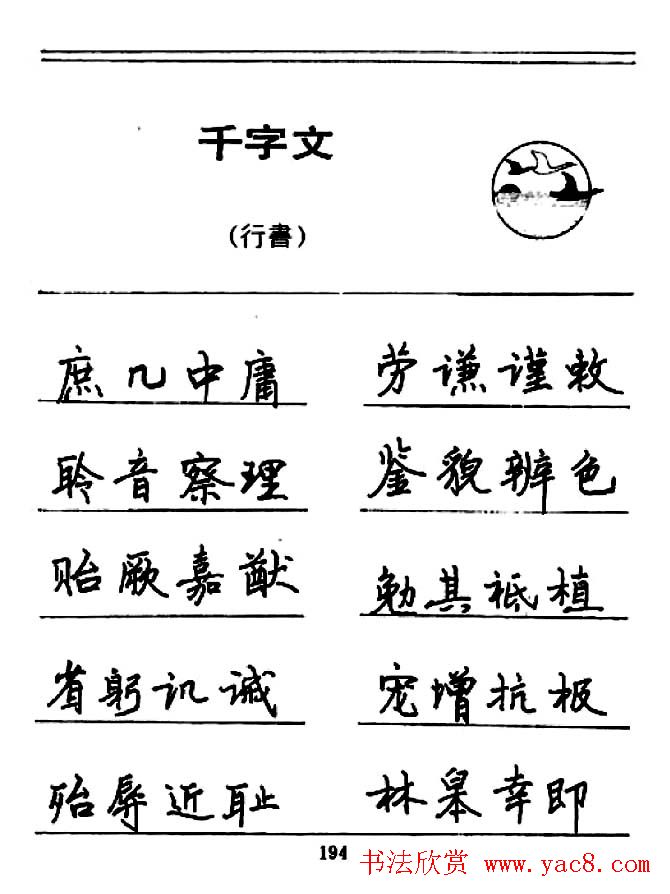 千字文
(行書)
庶几中庸 劳谦谨敕
聆音察理 鉴貌辨色
贻厥嘉猷 勉其祗植
省躬讥诫 宠增抗极
殆辱近耻 林皋幸即
194
书法欣赏 www.yac8.com